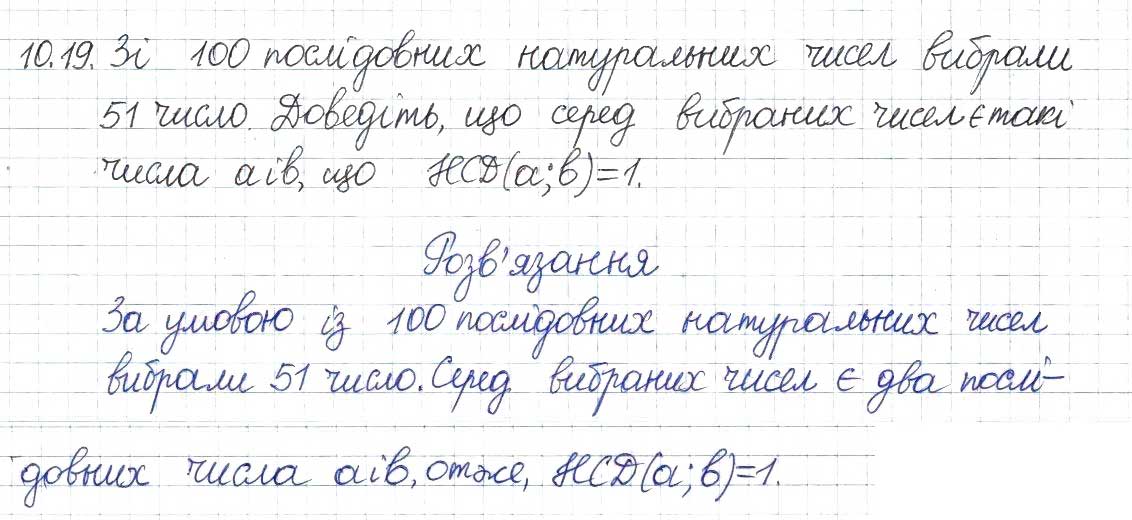 10.19. Зі 100 послідовних натуральних чисел вибрали
51 число. Доведіть, що серед вибраних чисел є такі
числа a і b, що НСD(a;b)=1.
Розв'язання
За умовою із 100 послідовних натуральних чисел
вибрали 51 число. Серед вибраних чисел є два послі-
довних числа a і b, отже, НСD(a;b)=1.